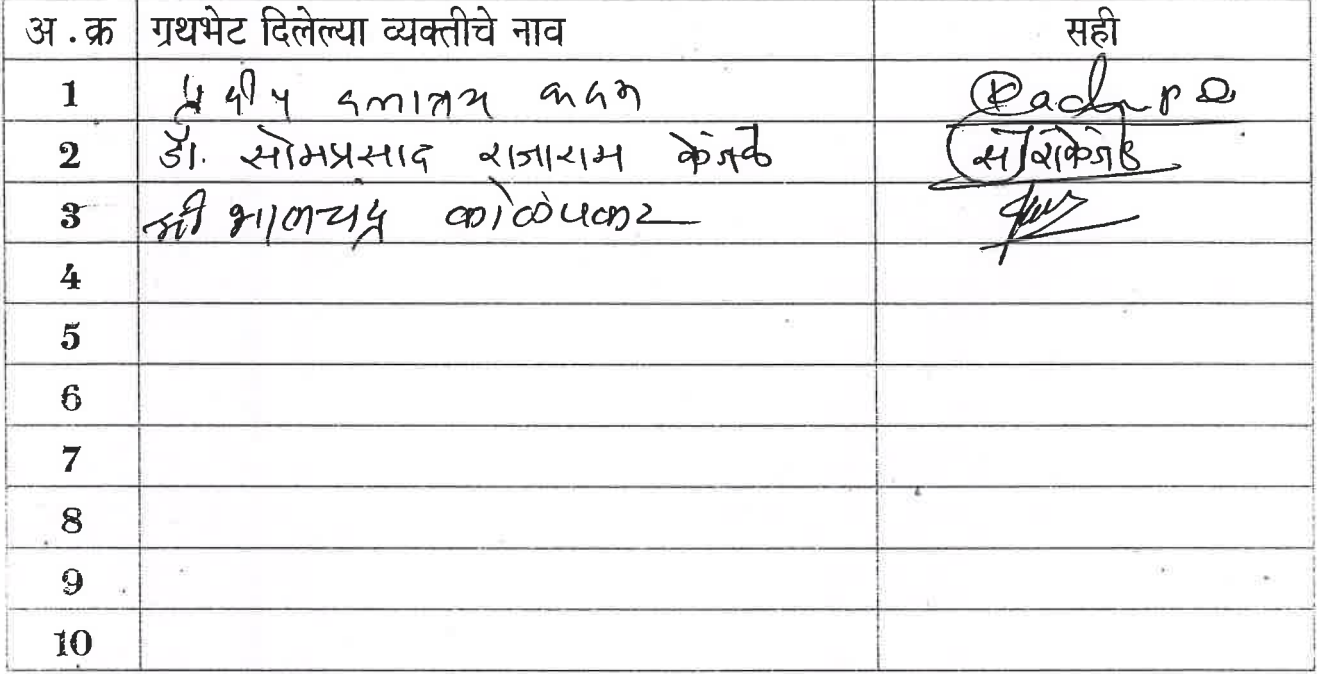 अ.क्र ग्रथभेट दिलेल्या व्यक्तीचे नाव सही
1 प्रदीप दत्तात्रय कदम
2 डॉ. सोमप्रसाद राजाराम केंजळे
3 श्री भालचंद्र कोळंपकर
4
5
6
7
8
9
10